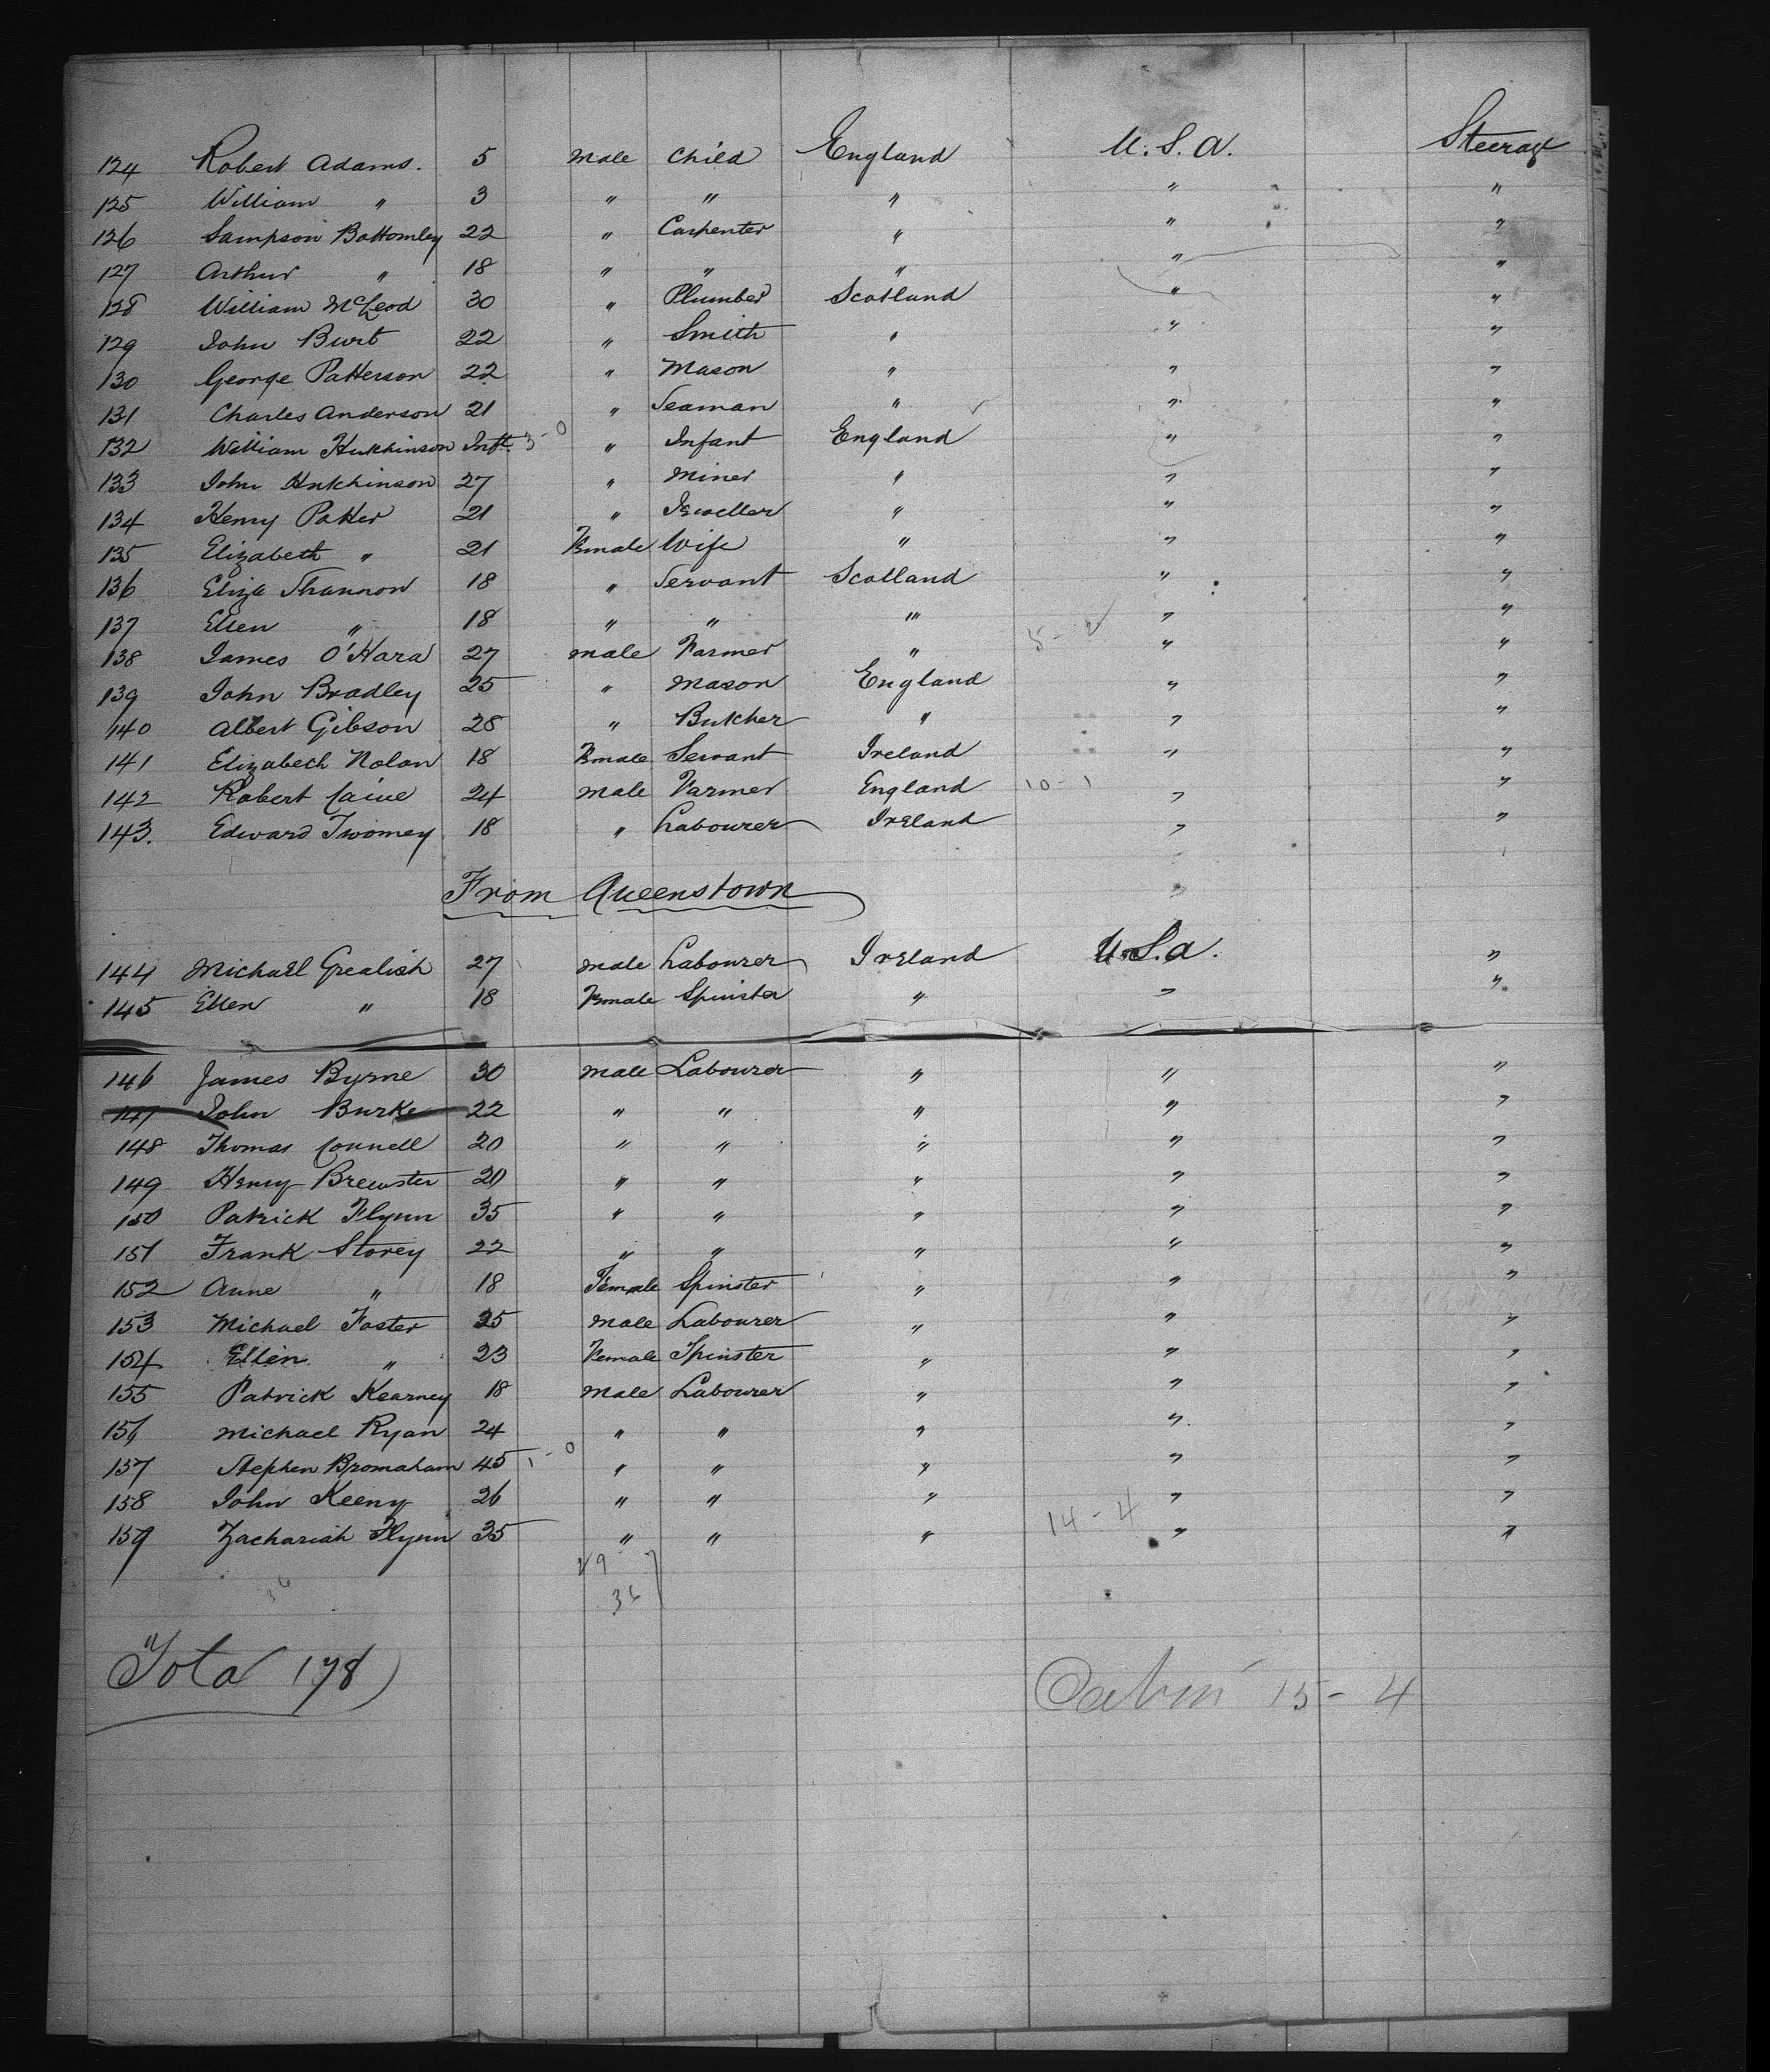 124 Robert Adams. 5 Male Child England U.S.A. Steerage
125 William " 3 " " " " "
126 Sampson Bottomley 22 " Carpenter " " "
127 Arthur " 18 " " " " "
128 William McLeod 30 " Plumber Scotland " "
129 John Burt 22 " Smith " " "
130 George Patterson 22 " Mason " " "
131 Charles Anderson 21 " Seaman " " "
132 William Hutchinson Inft. 3-0 " Infant England " "
133 John Hutchinson 27 " Miner " " "
134 Henry Potter 21 " Jeweller " " "
135 Elizabeth " 21 Female Wife " " "
136 Eliza Shannon 18 " Servant Scotland " "
137 Ellen " 18 " " " " "
138 James O'Hara 27 male Farmer " " "
139 John Bradley 25 " Mason England " "
140 Albert Gibson 28 " Butcher " " "
141 Elizabeth Nolan 18 Female Servant Ireland " "
142 Robert Caine 24 Male Farmer England 10-1 " "
143. Edward Twomey 18 " Labourer Ireland " "
From Queenstown
144 Michael Grealish 27 Male Labourer Ireland U.S.A. "
145 Ellen " 18 Female Spinster " " "
146 James Byrne 30 Male Labourer " " "
147 John Burke 22 " " " " "
148 Thomas Connell 20 " " " " "
149 Henry Brewster 20 " " " " "
150 Patrick Flynn 35 " " " " "
151 Frank Storey 22 " " " " "
152 Anne " 18 Female Spinster " " "
153 Michael Foster 25 Male Labourer " " "
154 Ellen " 23 Female Spinster " " "
155 Patrick Kearney 18 Male Labourer " " "
156 Michael Ryan 24 " " " " "
157 Stephen Bromaham 45 1-0 " " " " "
158 John Keeny 26 " " " " "
159 Zachariah Flynn 35 " " " 14-4 " "
29
36 36
Total 178
Cabin 15-4